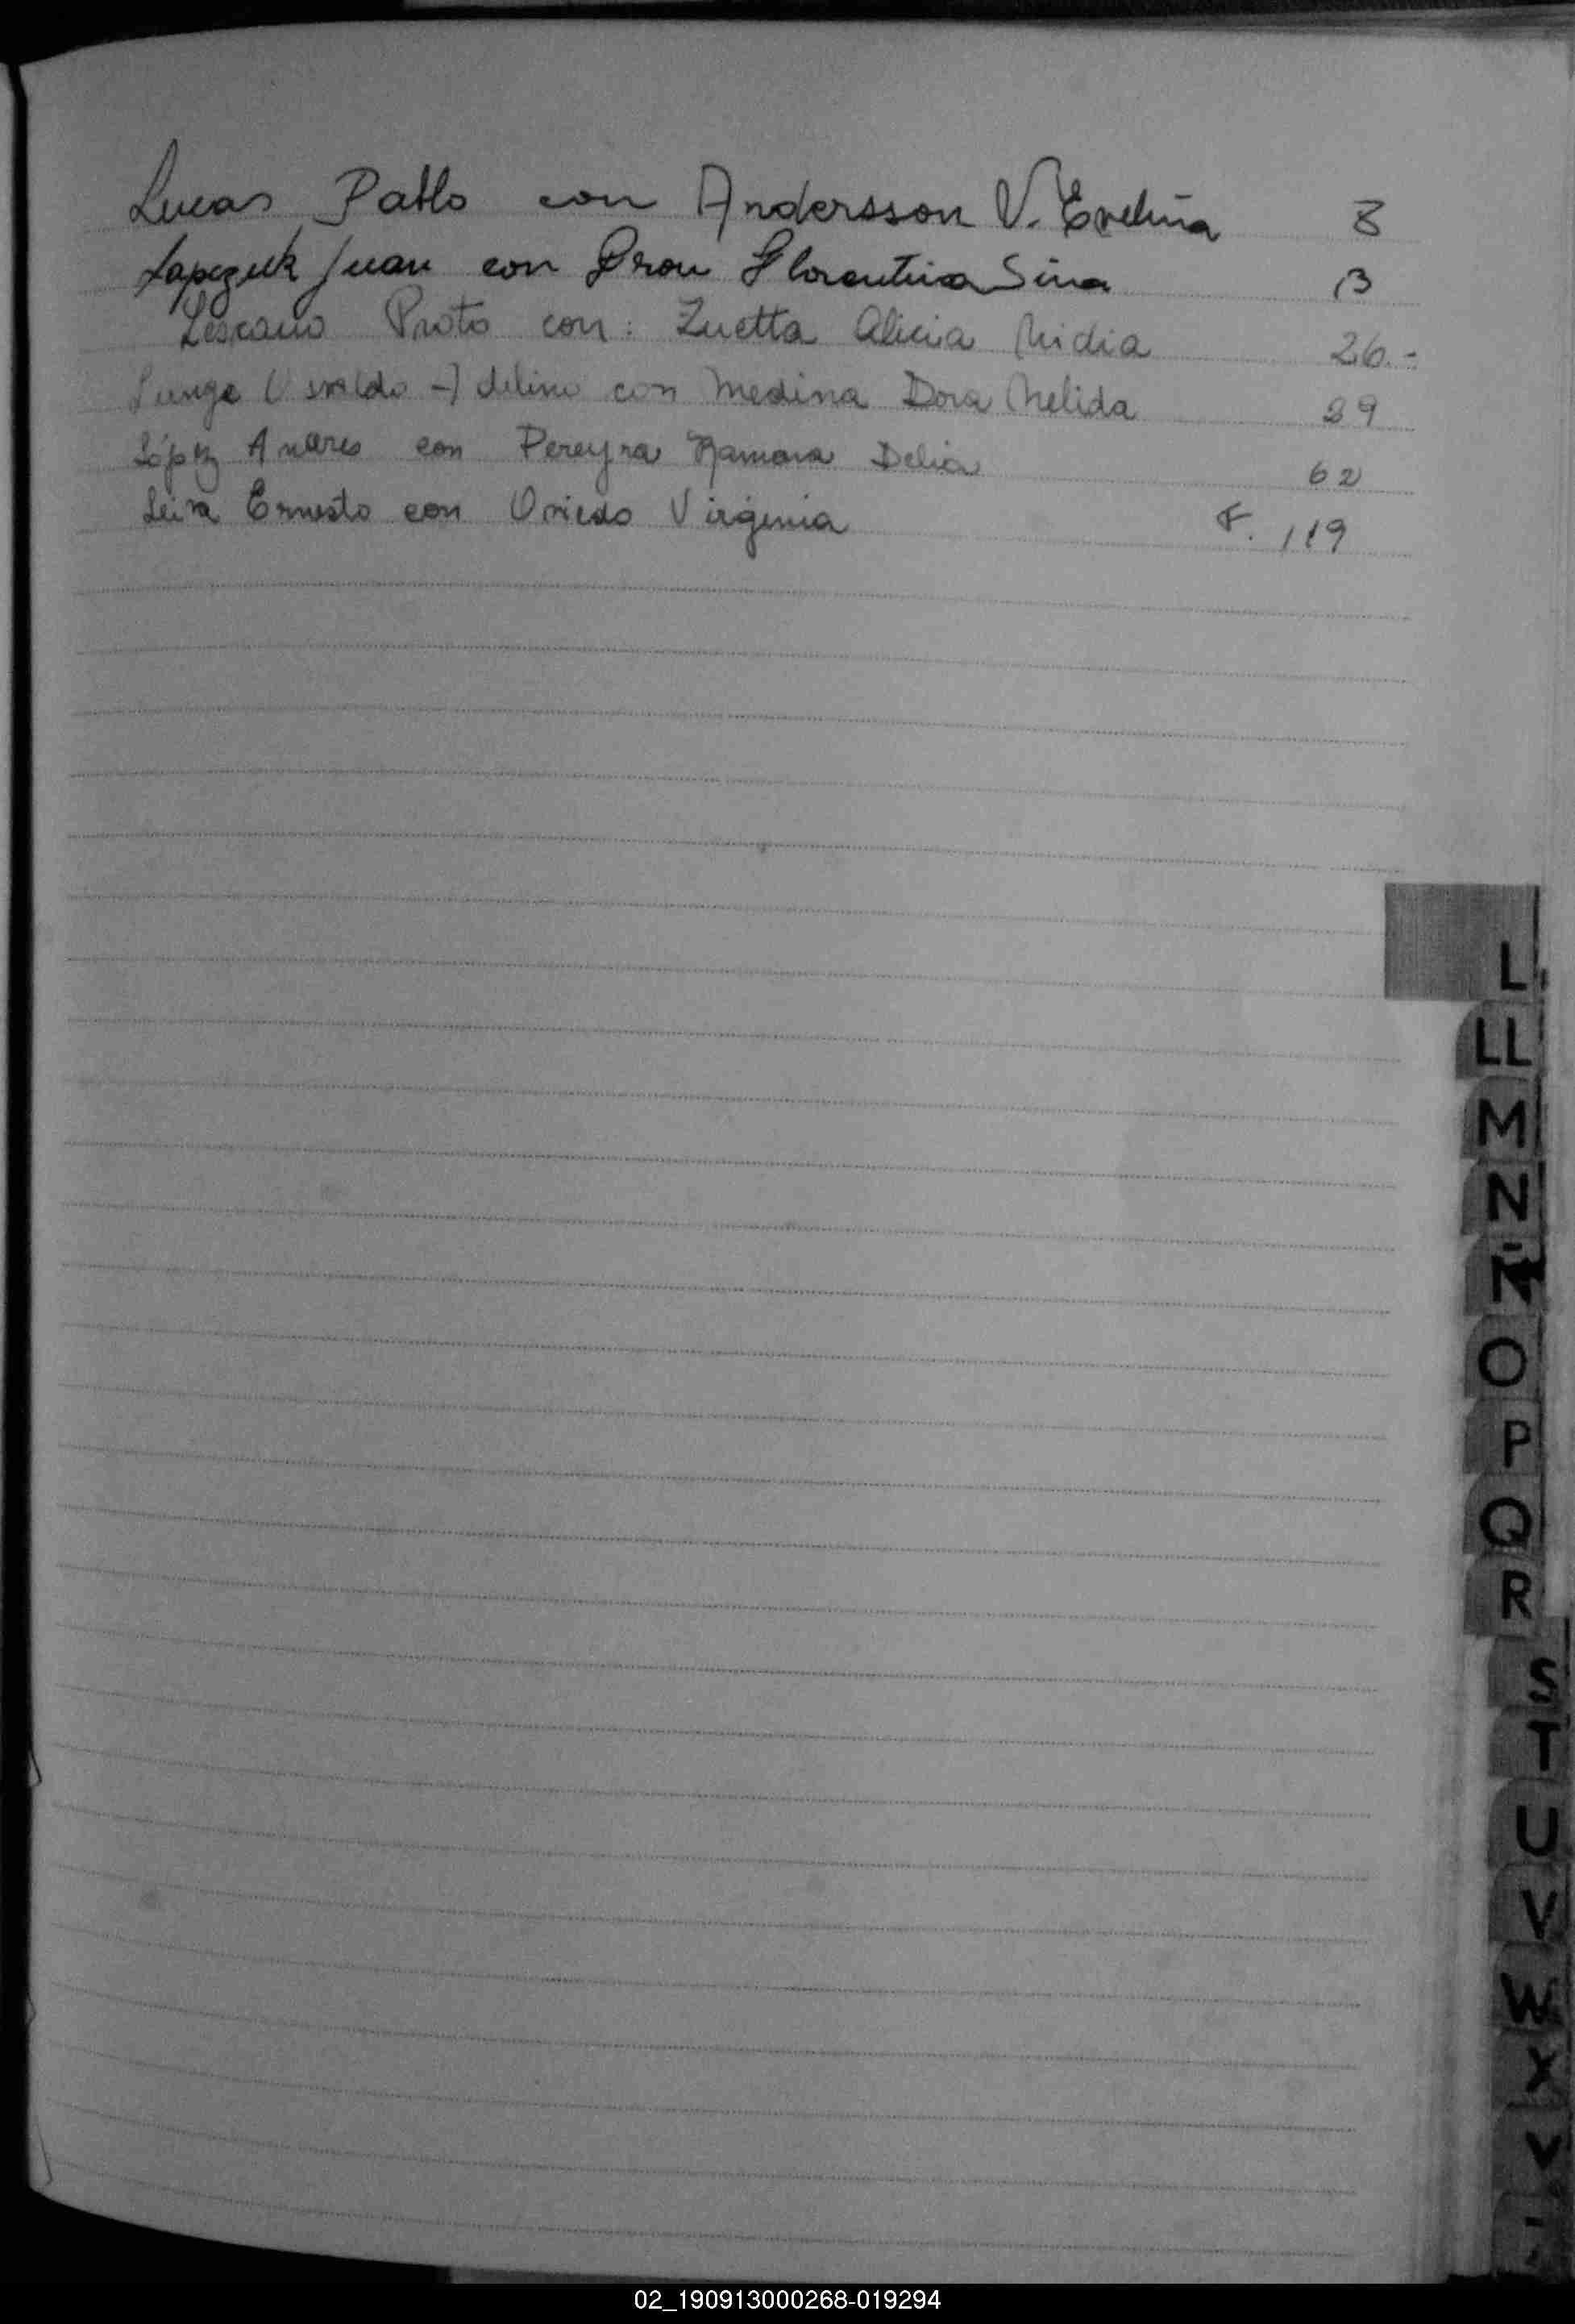 Lucas Pablo con Andersson V. Evelina 8
Lapezuk Juan con Florentina Sina 13
Lescano Proto con: Zuetta Alicia Nidia 26.-
Osvaldo Adelino con Medina Dora Nelida 29
López Andres con Pereyra Ramona Delia 62
Leiva Ernesto con Oviedo Virginia F. 119
L
LL
M
N
Ñ
O
P
Q
R
S
T
U
V
W
X
Y
02_190913000268-019294